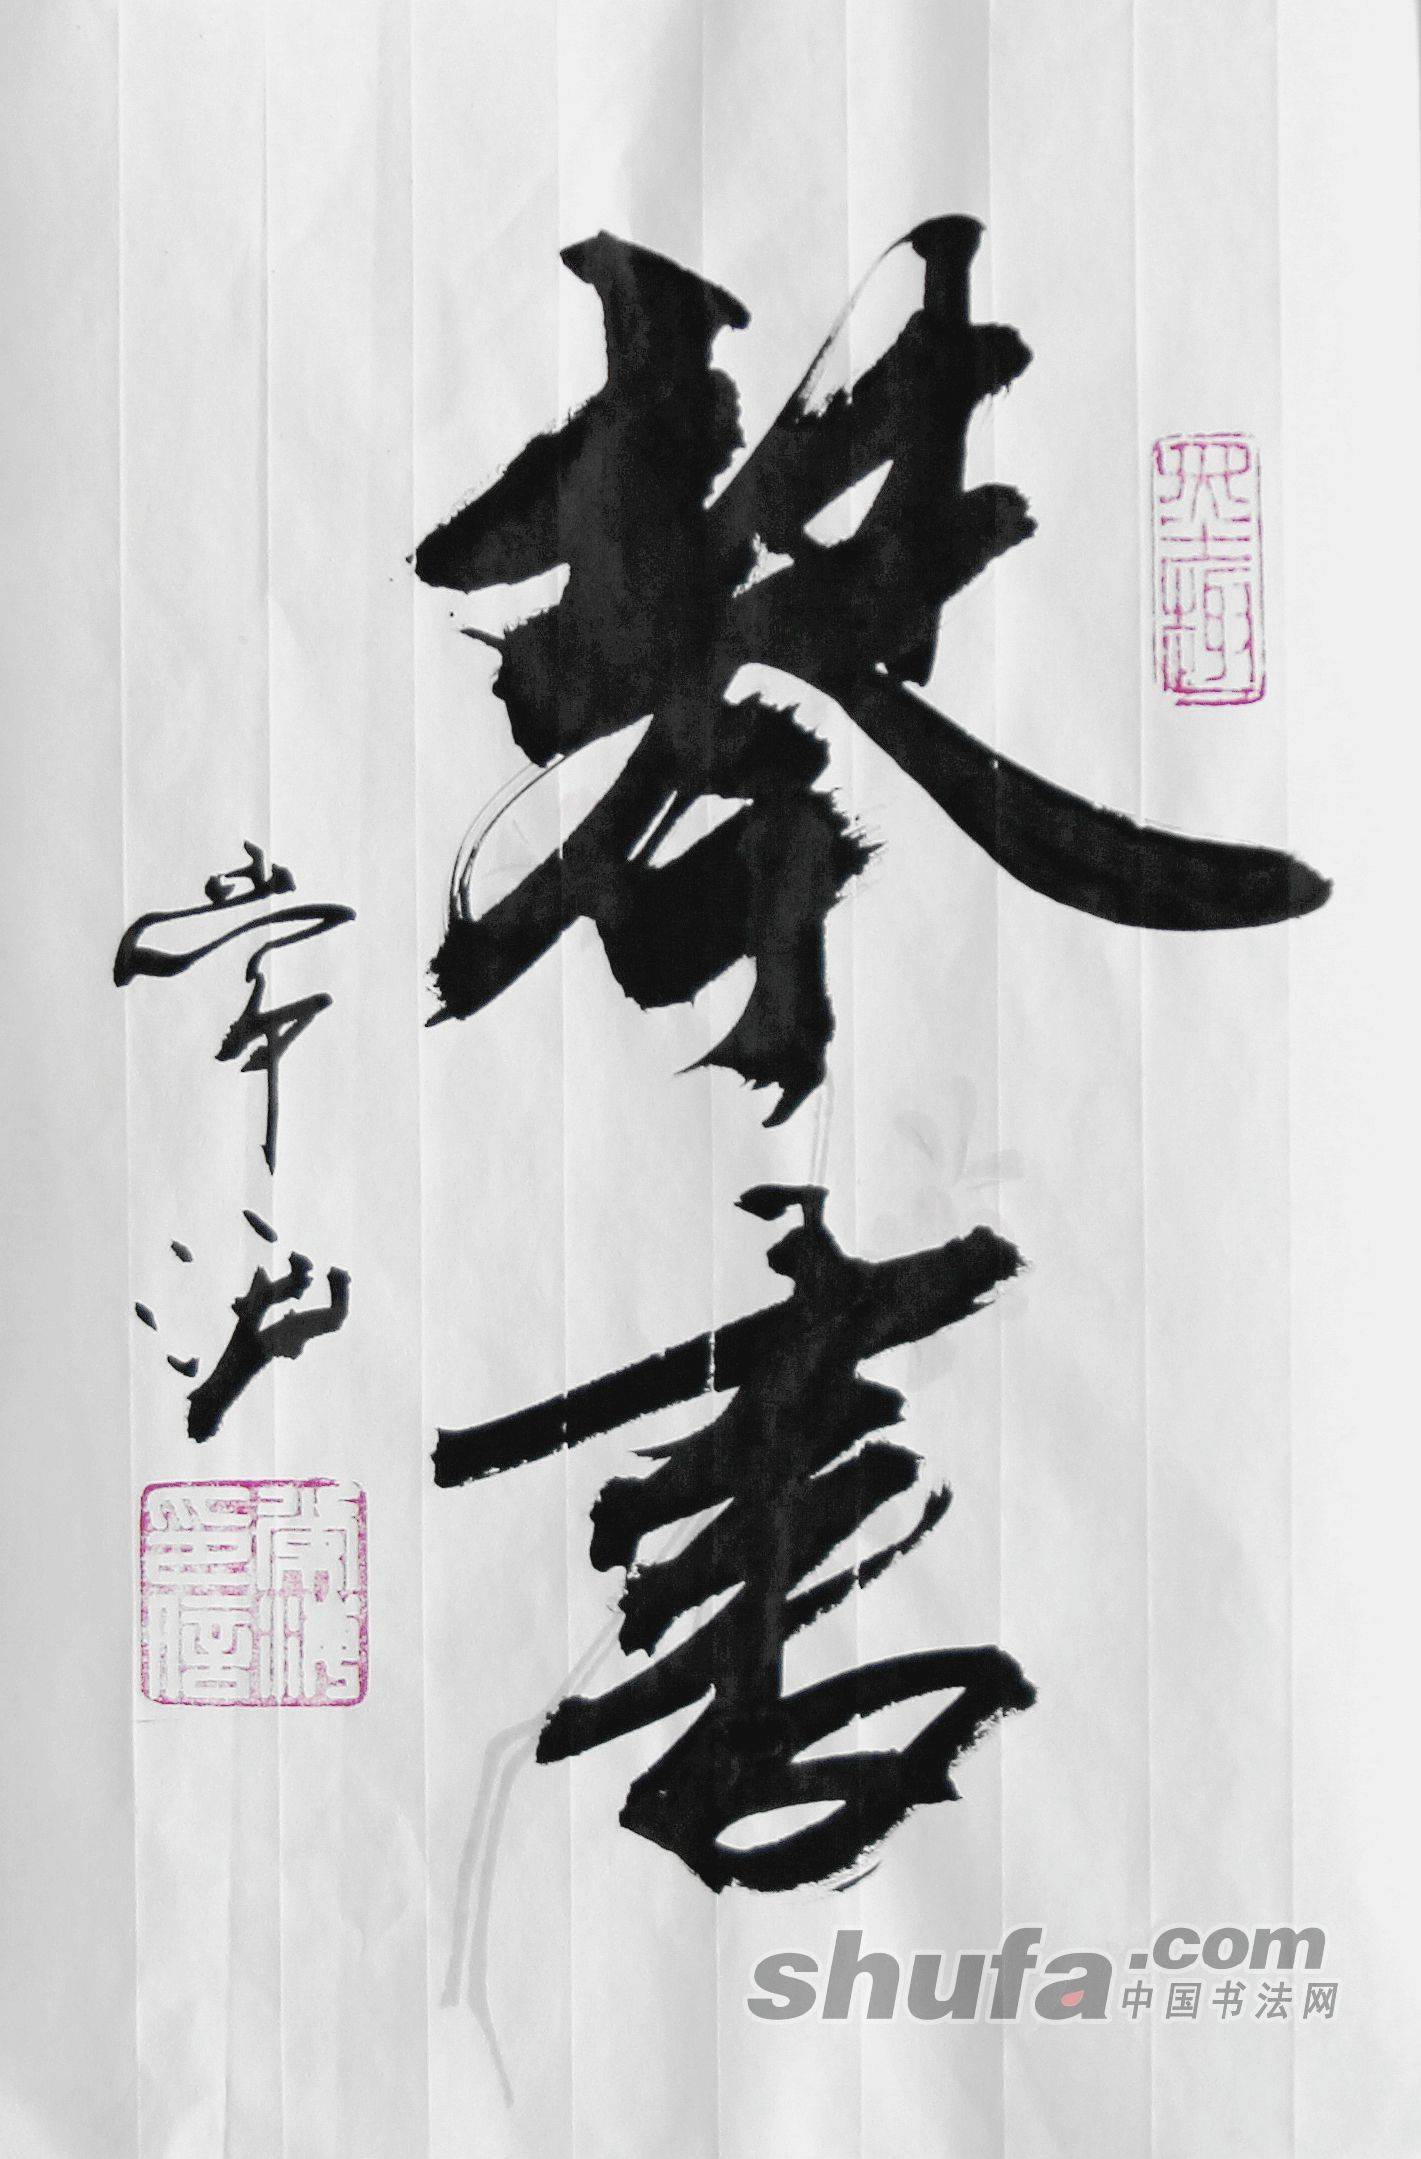 琴書
常
印信
shufa.com
中国书法网